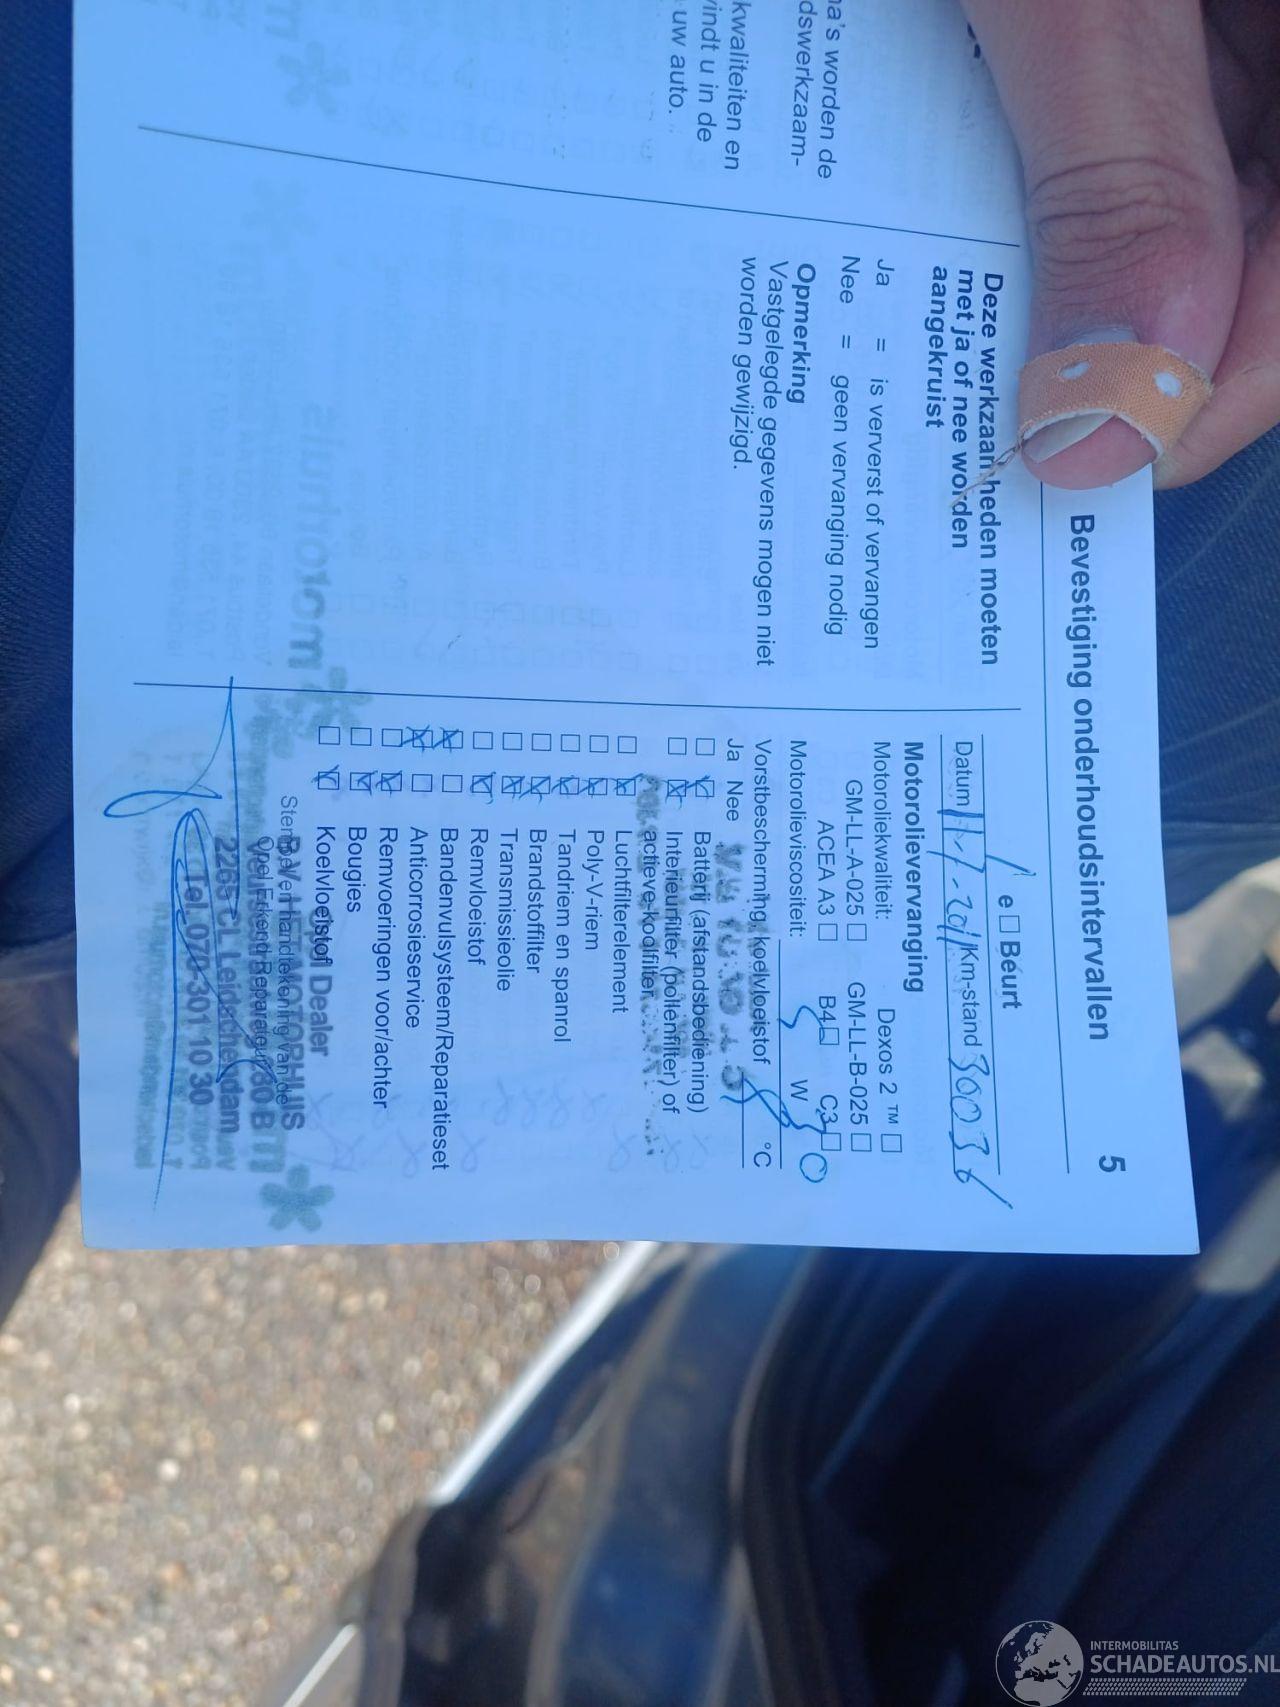 Bevestiging onderhoudsintervallen 5
a's worden de
dswerkzaam-
kwaliteiten en
vindt u in de
uw auto.
Deze werkzaamheden moeten
met ja of nee worden
aangekruist
Ja = is ververst of vervangen
Nee = geen vervanging nodig
Opmerking
Vastgelegde gegevens mogen niet
worden gewijzigd.
1 e □ Beurt
Datum 11-7-2011 Km-stand 30036
Motorolievervanging
Motoroliekwaliteit: Dexos 2 ™ □
GM-LL-A-025 □ GM-LL-B-025 □
ACEA A3 □ B4 □ C3 □
Motorolieviscositeit: 5 W 30
Vorstbescherming koelvloeistof °C
Ja Nee
Batterij (afstandsbediening)
Interieurfilter (pollenfilter) of
actieve-koolfilter
Luchtfilterelement
Poly-V-riem
Tandriem en spanrol
Brandstoffilter
Transmissieolie
Remvloeistof
Bandenvulsysteem/Reparatieset
Anticorrosieservice
Remvoeringen voor/achter
Bougies
Koelvloeistof
Dealer
B.V. HET MOTORHUIS
Opel Erkend Reparateur
2265 CL Leidschendam
Tel. 070-301 10 30
INTERMOBILITAS
SCHADEAUTOS.NL